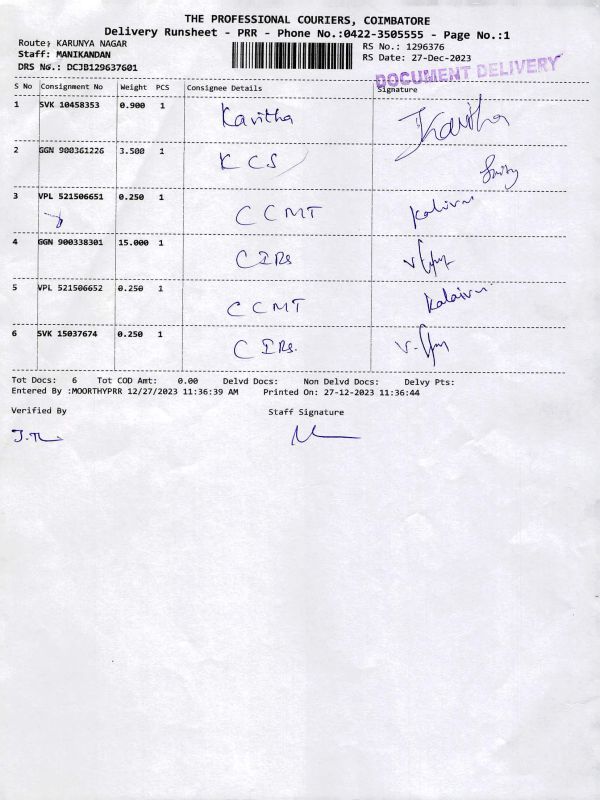 THE PROFESSIONAL COURIERS, COIMBATORE
Delivery Runsheet - PRR - Phone No.:0422-3505555 - Page No.:1
Route: KARUNYA NAGAR RS No.: 1296376
Staff: MANIKANDAN RS Date: 27-Dec-2023
DRS No.: DCJB129637601
DOCUMENT DELIVERY
S No Consignment No Weight PCS Consignee Details Signature
1 SVK 10458353 0.900 1 Kavitha Kavitha
2 GGN 900361226 3.500 1 KCS
3 VPL 521506651 0.250 1 CCMT
4 GGN 900338301 15.000 1 CIRs
5 VPL 521506652 0.250 1 CCMT
6 SVK 15037674 0.250 1 CIRs.
Tot Docs: 6 Tot COD Amt: 0.00 Delvd Docs: Non Delvd Docs: Delvy Pts:
Entered By :MOORTHYPRR 12/27/2023 11:36:39 AM Printed On: 27-12-2023 11:36:44
Verified By Staff Signature